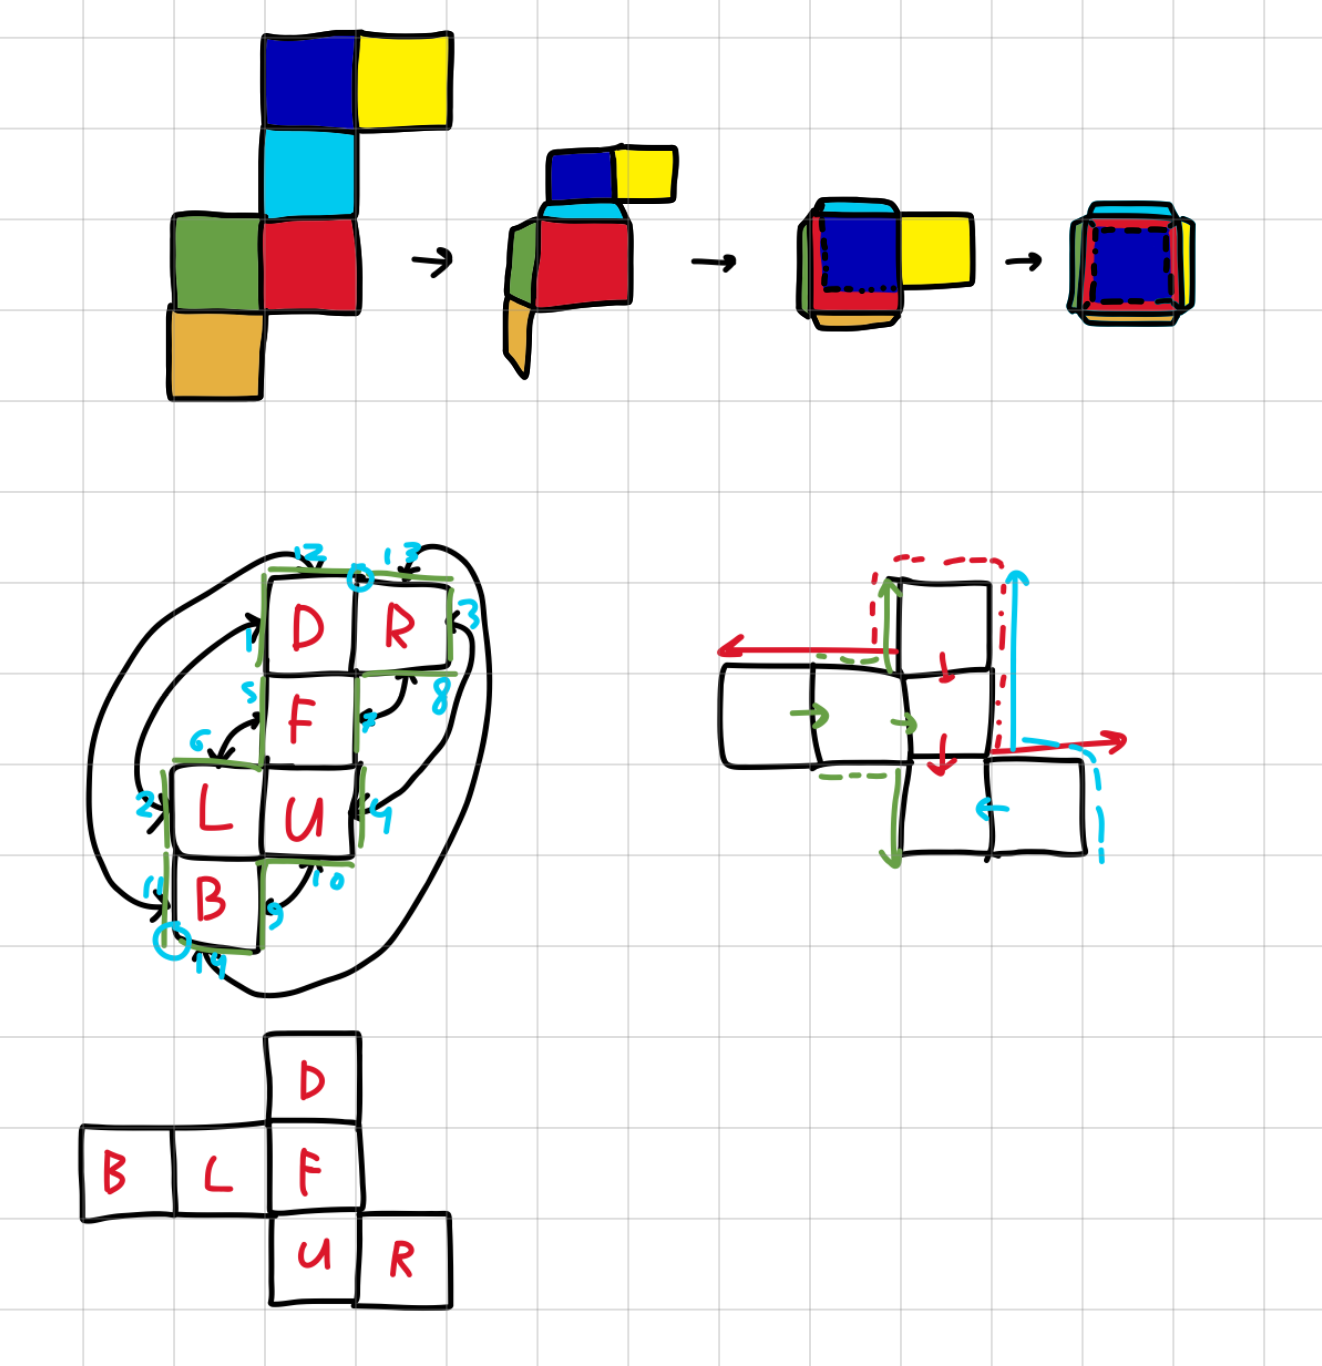 12 13
D R
1 3
5 F 7 8
6
2 L U 4
11 B 9 10
14
D
B L F
U R